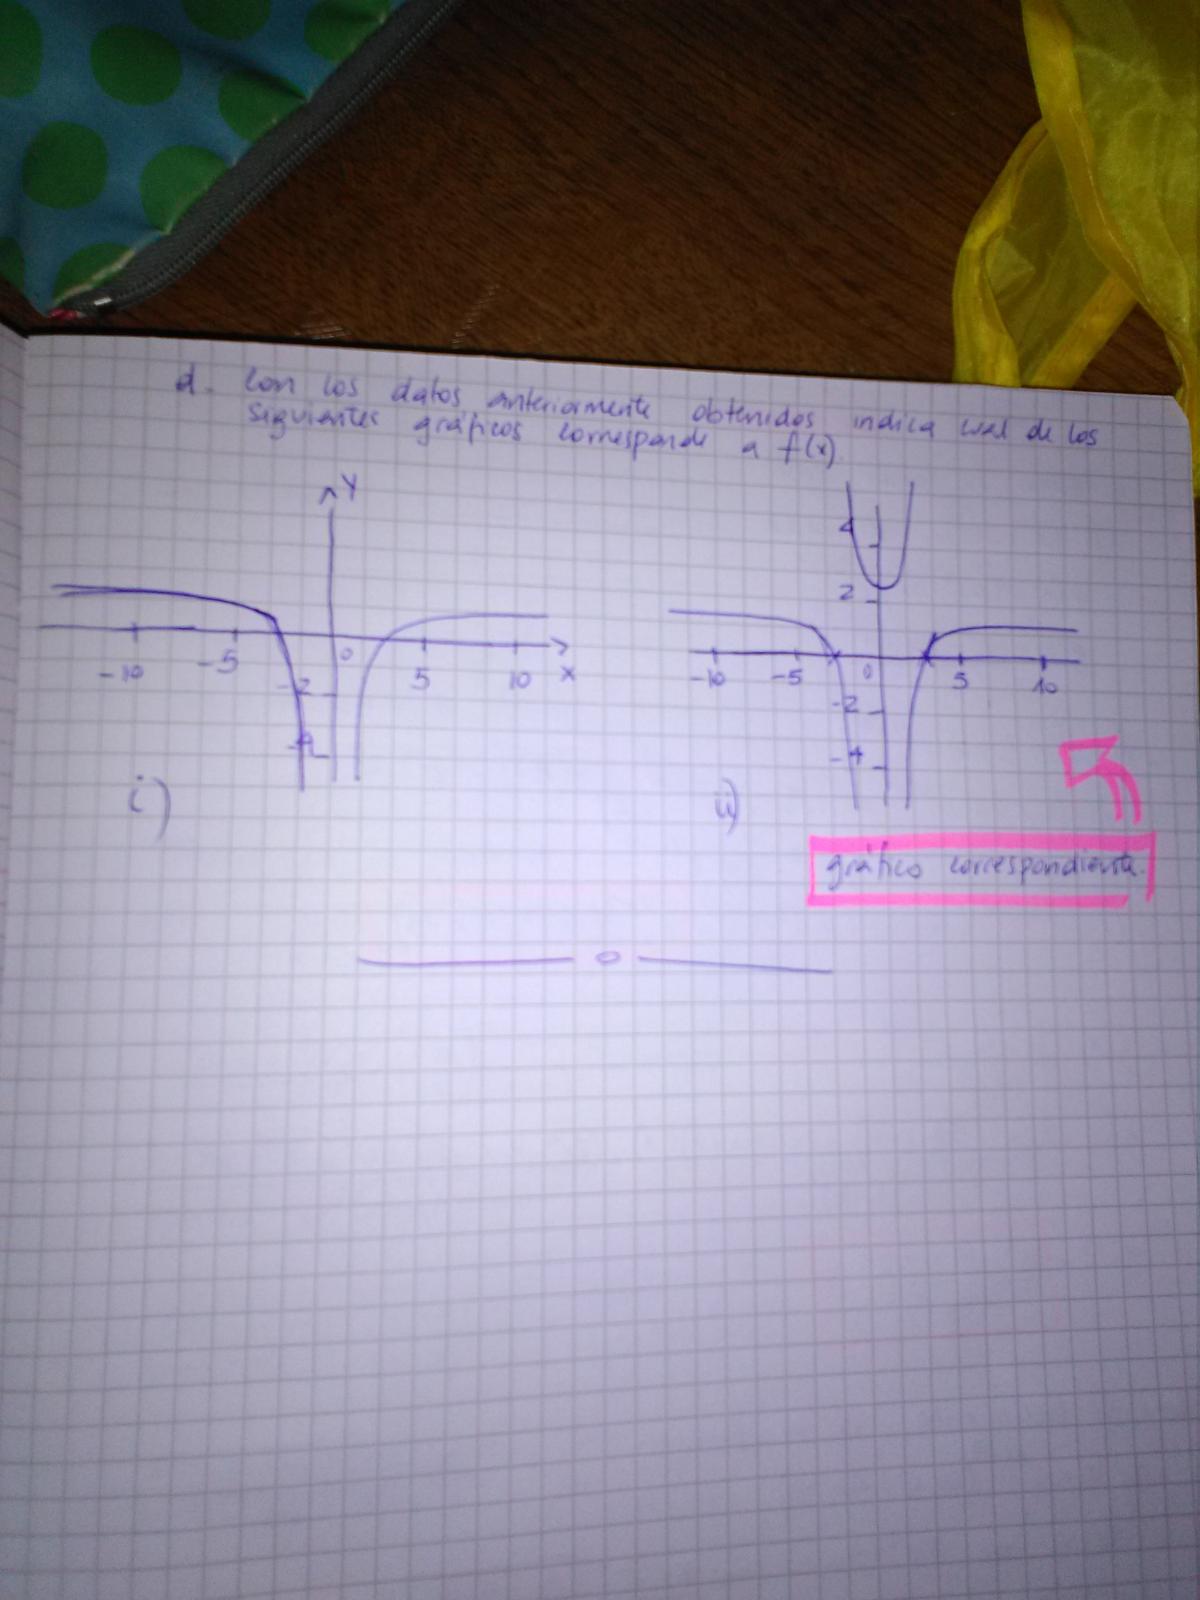 d. Con los datos anteriormente obtenidos indica cual de los
siguientes gráficos corresponde a f(x)
Y
-10 -5 0 5 10 X
-2
-4
i)
4
2
-10 -5 0 5 10
-2
-4
ii)
gráfico correspondiente.